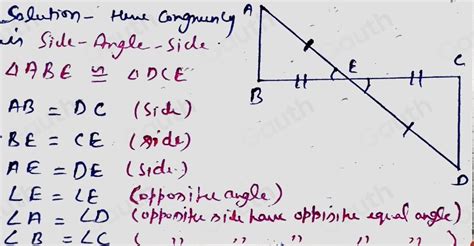 Solution - Here Congruency
is Side-Angle-side.
△ABE ≅ △DCE
AB = DC (Side)
BE = CE (side)
AE = DE (side)
∠E = ∠E (opposite angle)
∠A = ∠D (opposite side have opposite equal angle)
∠B = ∠C ( " " " " " )
A
E
C
B
D